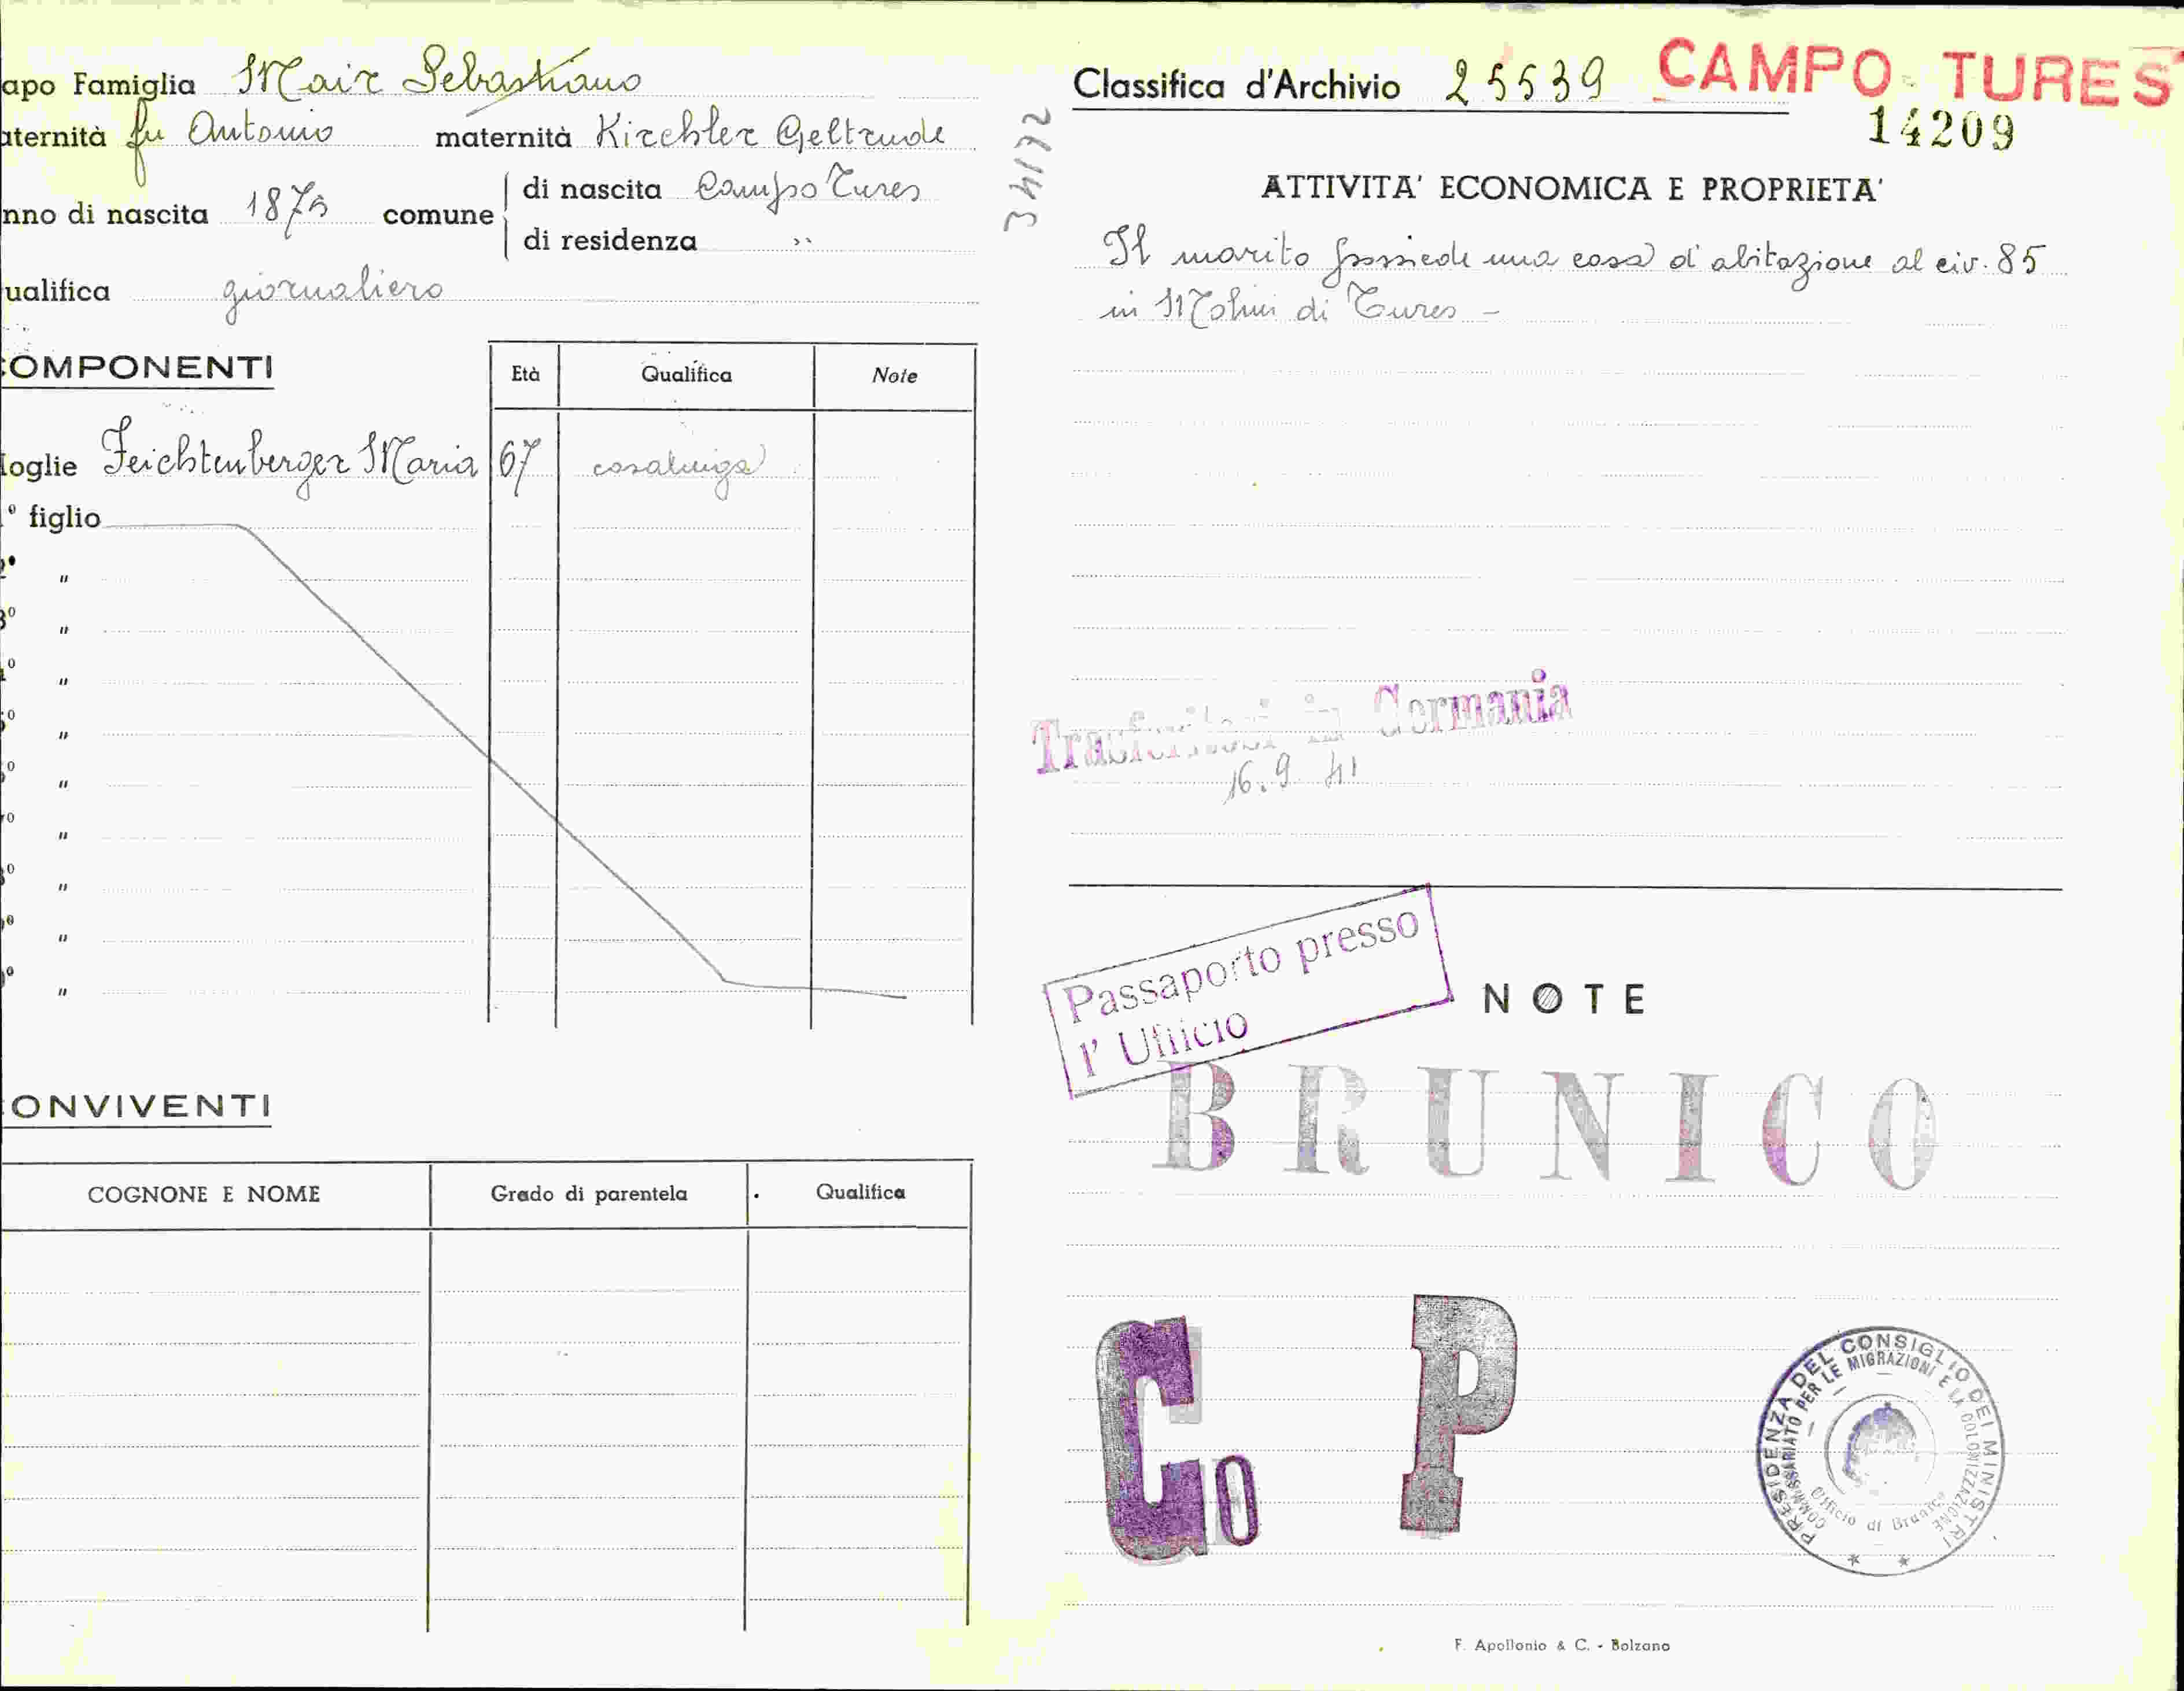 apo Famiglia Mair Sebastiano
aternità fu Antonio maternità Kirchler Geltrude
nno di nascita comune di nascita Campo Tures
di residenza "
ualifica giornaliero
OMPONENTI Età Qualifica Note
oglie Feichtenberger Maria 67 casalinga
° figlio
2° "
3° "
° "
° "
° "
° "
° "
° "
° "
ONVIVENTI
COGNONE E NOME Grado di parentela Qualifica
34192
Classifica d'Archivio 25539 CAMPO TURES
14209
ATTIVITA' ECONOMICA E PROPRIETA'
Il marito possiede una casa d'abitazione al civ. 85
in Molini di Tures -
Trasferitosi in Germania
16.9 41
Passaporto presso
l' Ufficio
NOTE
BRUNICO
Co P
PRESIDENZA DEL CONSIGLIO DEI MINISTRI
COMMISSARIATO PER LE MIGRAZIONI E LA COLONIZZAZIONE
Ufficio di Brunico
F. Apollonio & C. - Bolzano